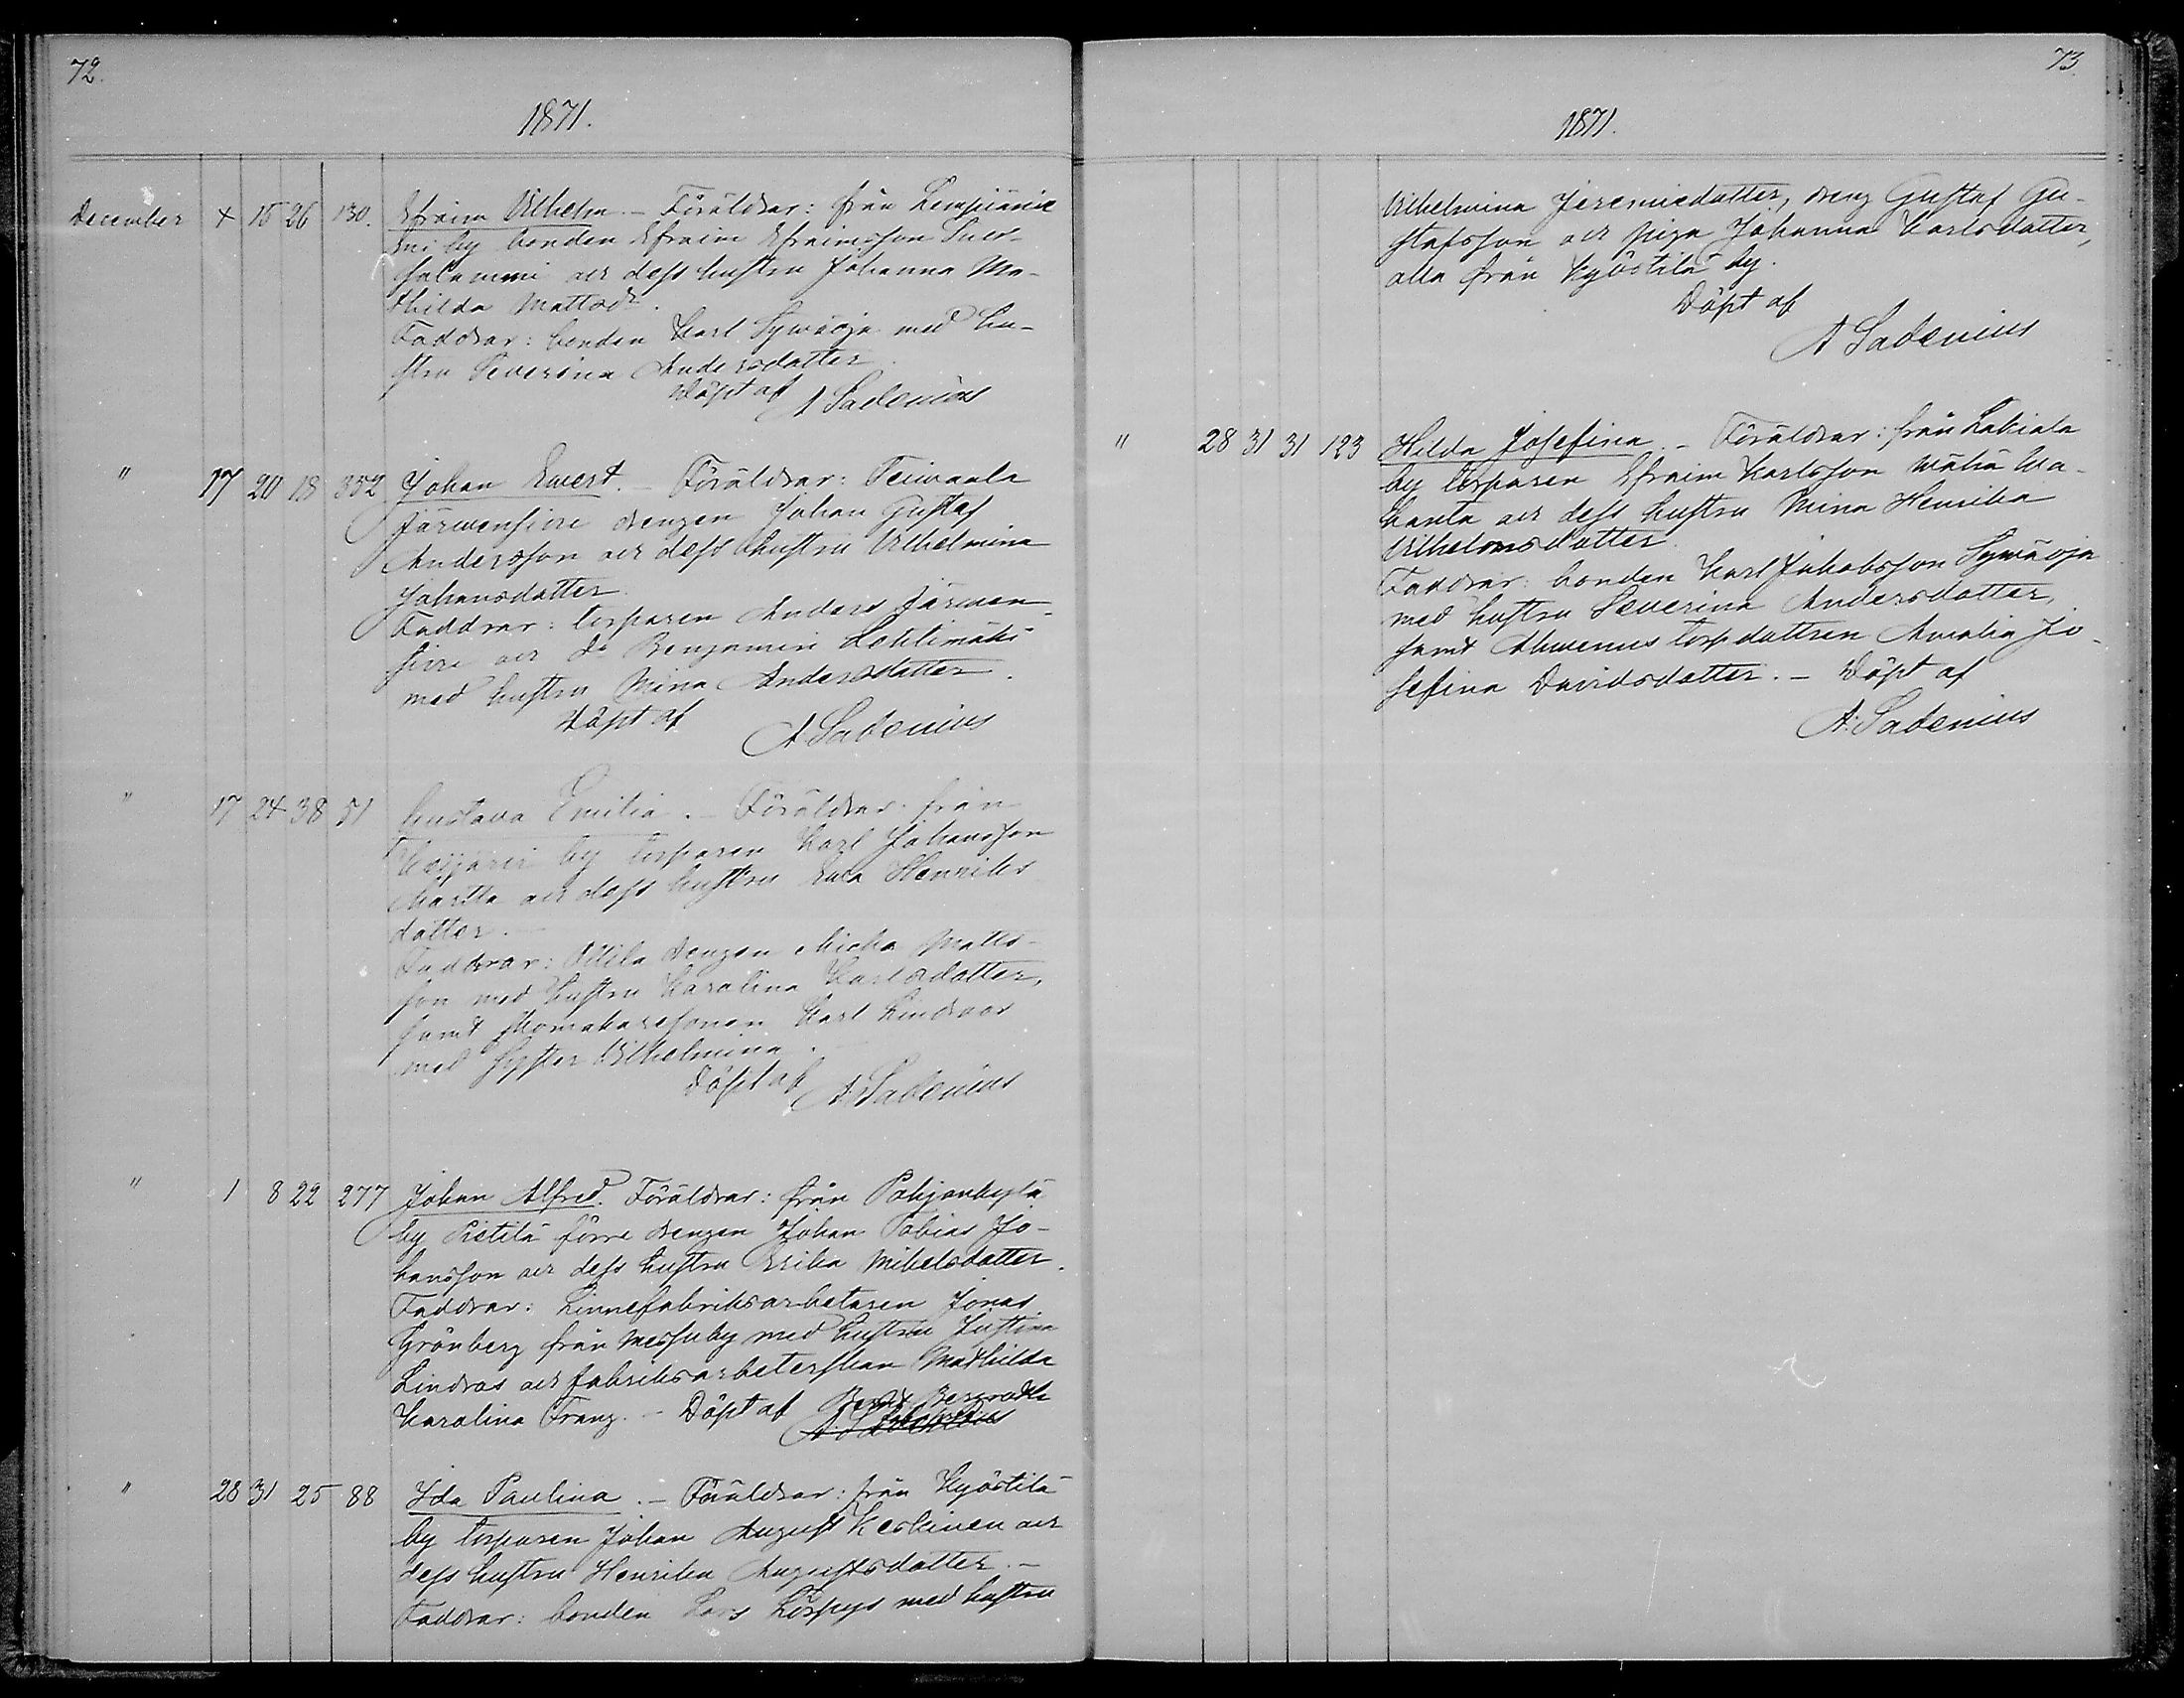 72.
1871.
December 4 15 26 130. Efraim Vilhelm. – Föräldrar: från Lempiäniemi
by bonden Efraim Efraimsson
och dess hustru Johanna Ma-
thilda Mattsdr.
Faddrar: bonden Karl Sywäoja med hu-
stru Severina Andersdotter.
Döpt af A Sadenius
" 17 20 18 352 Johan Evert. – Föräldrar: Teiwaala
Järwensivu drengen Johan Gustaf
Andersson och dess hustru Vilhelmina
Johansdotter.
Faddrar: torparen Anders Järwen-
sivu och do Benjamin Lehtimäki
med hustru Mina Andersdotter.
Döpt af A Sadenius
" 17 24 38 51 Gustava Emilia. – Föräldrar från
by torparen Karl Johansson
och dess hustru Eva Henriks
dotter. –
Faddrar: drengen Micka Matts-
son med hustru Karolina Karlsdotter,
samt Karl Lindroos
med syster Vilhelmina. –
Döpt af A Sadenius
" 1 8 22 277 Johan Alfred. Föräldrar: från Pohjankylä
by Pietilä förre drengen Johan Tobias Jo-
hansson och dess hustru Erika Mikelsdotter.
Faddrar: Linnefabriksarbetaren Jonas
Grönberg från Messuby med hustru Justina
Lindros och fabriksarbeterskan Mathilda
Karolina Franz. – Döpt af Bergroth
A. Sadenius
" 28 31 25 88 Ida Paulina. – Föräldrar: från Kyöstilä
by torparen Johan August Keskinen och
dess hustru Henrika Augustsdotter. –
Faddrar: bonden Lars med hustru
73.
1871.
Vilhelmina Jeremiedotter, dreng Gustaf Gu-
stafsson och piga Johanna Karlsdotter,
alla från Kyöstilä by.
Döpt af
A Sadenius
" 28 31 31 123 Hilda Josefina. – Föräldrar: från Lakiala
by torparen Efraim Karlsson Mäkä
och dess hustru Mina Henrika
Vilhelmsdotter
Faddrar: bonden Karl Jakobsson Sywäoja
med hustru Severina Andersdotter,
samt torp dottren Amalia Jo-
sefina Davidsdotter. – Döpt af
A. Sadenius